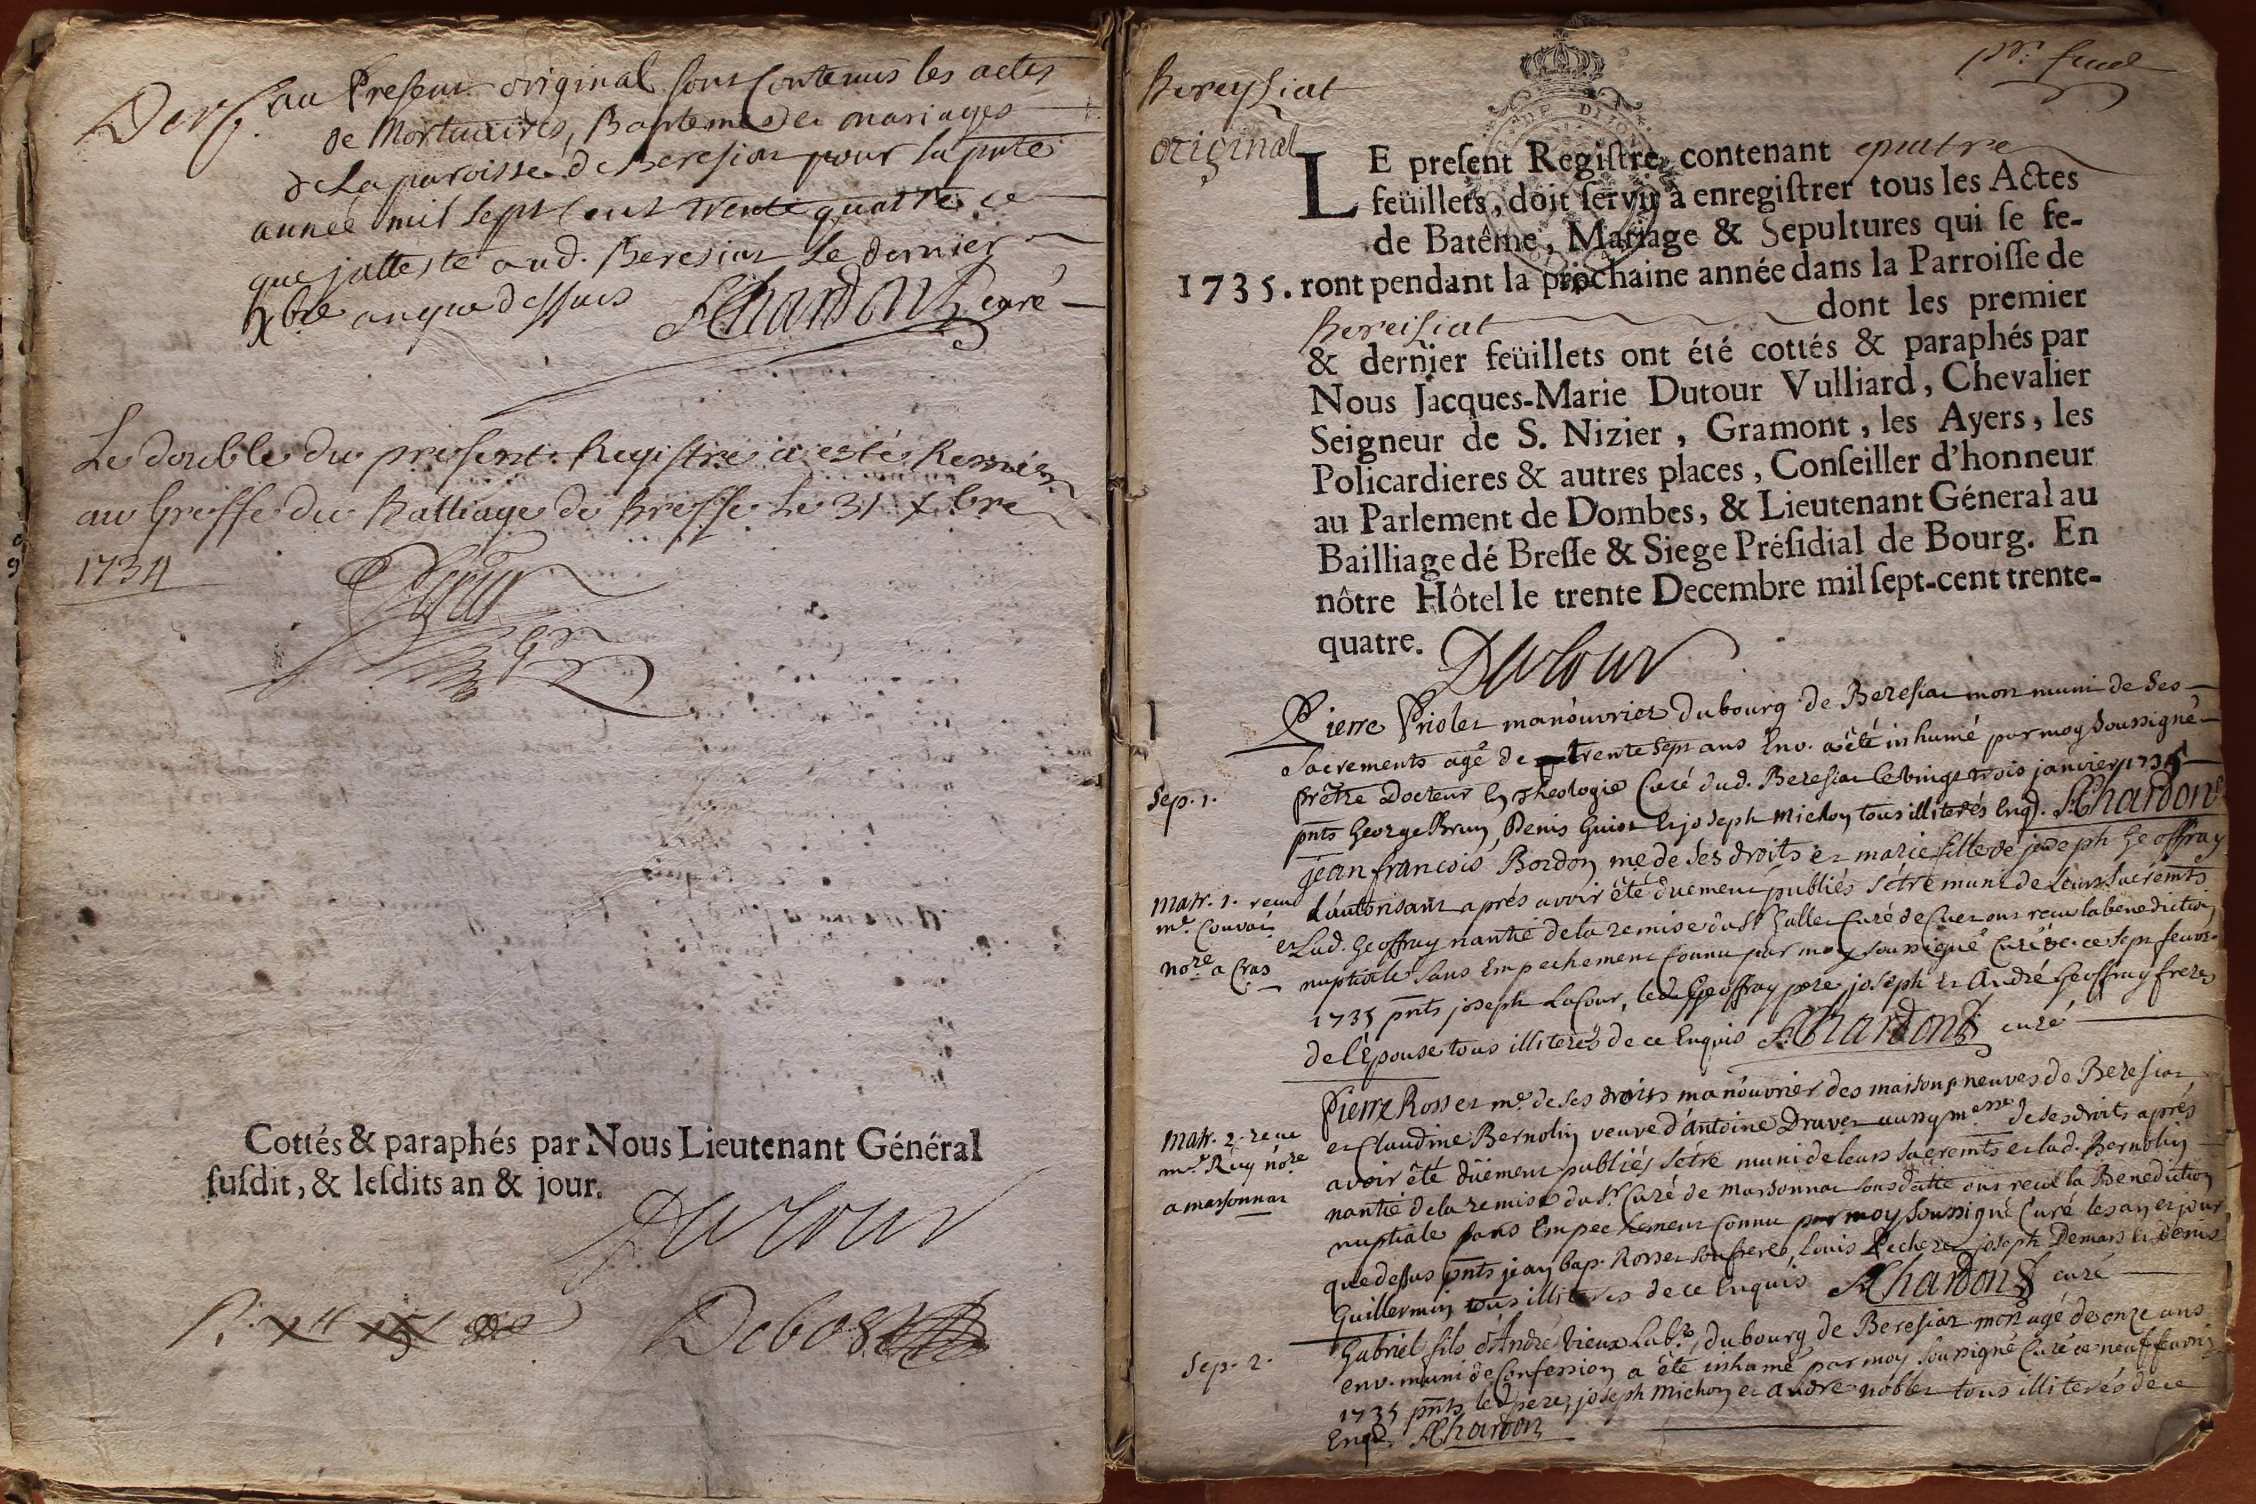 au Present original sont Contenus les actes
de Mortuaires, Baptemes et mariages
de La paroisse de Beresiat pour la pnte
année mil sept Cent trente quatre, ce
que j'atteste aud. Beresiat Le dernier
Xbre an que dessus Chardon curé
Le double du present Registre a esté Remis
au Greffe du Balliage de Bresse Le 31 Xbre
1734
Cottés & paraphés par Nous Lieutenant Général
ſuſdit, & leſdits an & jour.
Dutour
Debost
Bereysiat
original
LE preſent Regiſtre contenant quatre
feüillets, doit ſervir à enregiſtrer tous les Actes
de Batême, Mariage & Sepultures qui ſe fe-
1735. ront pendant la prochaine année dans la Parroiſſe de
Bereisiat dont les premier
& dernier feüillets ont été cottés & paraphés par
Nous Jacques-Marie Dutour Vulliard, Chevalier
Seigneur de S. Nizier, Gramont, les Ayers, les
Policardieres & autres places, Conſeiller d'honneur
au Parlement de Dombes, & Lieutenant Géneral au
Bailliage dé Breſſe & Siege Préſidial de Bourg. En
nôtre Hôtel le trente Decembre mil ſept-cent trente-
quatre. Dutour
Sep. 1.
Pierre Violet manouvrier du bourg de Beresiat mort muni de Ses
Sacrements agé de trente Sept ans Env. a été inhumé par moy Soussigné
prêtre Docteur en Theologie Curé dud. Beresiat le vingt trois janvier 1735
pnts George Brun, Denis Guiot et joseph Michon tous illiterés Enq. Chardon
Mar. 1. reçu
m.e Couvai
no.re a Cras
jean francois Bordon me de Ses droits et marie fille de joseph Geoffray
L'autorisant aprés avoir été duement publiés S'étre muni de Leurs Sacremts
et Lad. Geoffray nantie de la remise du Sr Curé de Cuet ont reçu la benediction
nuptiale Sans Empechement Connu par moy soussigné Curé ce sept fevr.
1735 pnts joseph LaCour, led. Geoffray pere, joseph et André Geoffray freres
de l'Epouse tous illiterés de ce Enquis Chardon curé
Mar. 2. reçu
m.e Ruy no.re
a marsonnas
Pierre Rosset me. de Ses droits manouvrier des maisons neuves de Beresiat
et Claudine Bernolin veuve d'Antoine Dravet aussy messe de Ses droits aprés
avoir été düement publiés S'étre muni de leurs Sacremts et lad. Bernolin
nantie de la remise du Sr. Curé de Marsonnas ont reçu la Benediction
nuptiale sans Empechement Connu par moy Soussigné Curé les an et jour
que dessus pnts jean bap. Rosset son frere, Louis Pechoux joseph Demars et Denis
Guillermin tous illiterés de ce Enquis Chardon curé
Sep. 2.
Gabriel fils d'André Vieux Labr. du bourg de Beresiat mort agé de onze ans
env. muni de Confession a été inhumé par moy Soussigné Curé ce neuf fevrier
1735 pnts led. pere, joseph Michon et andre noblet tous illiterés de ce
Enqs. Chardon